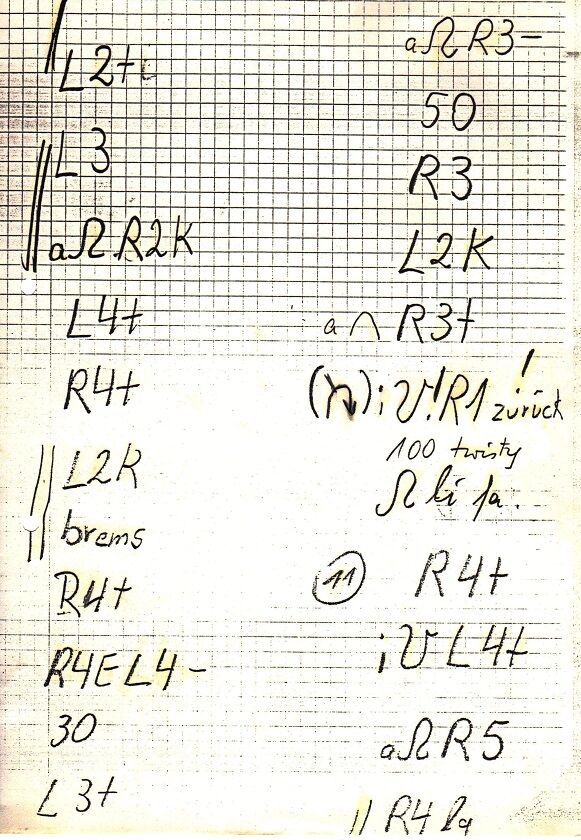 L2+
L3
aΩ R2K
L4+
R4+
L2K
brems
R4+
R4EL4-
30
L3+
aΩ R3-
50
R3
L2K
a∩ R3+
i V! R1 zurück
100 twisty
Ω li fa.
11 R4+
i V L4+
aΩ R5
R4